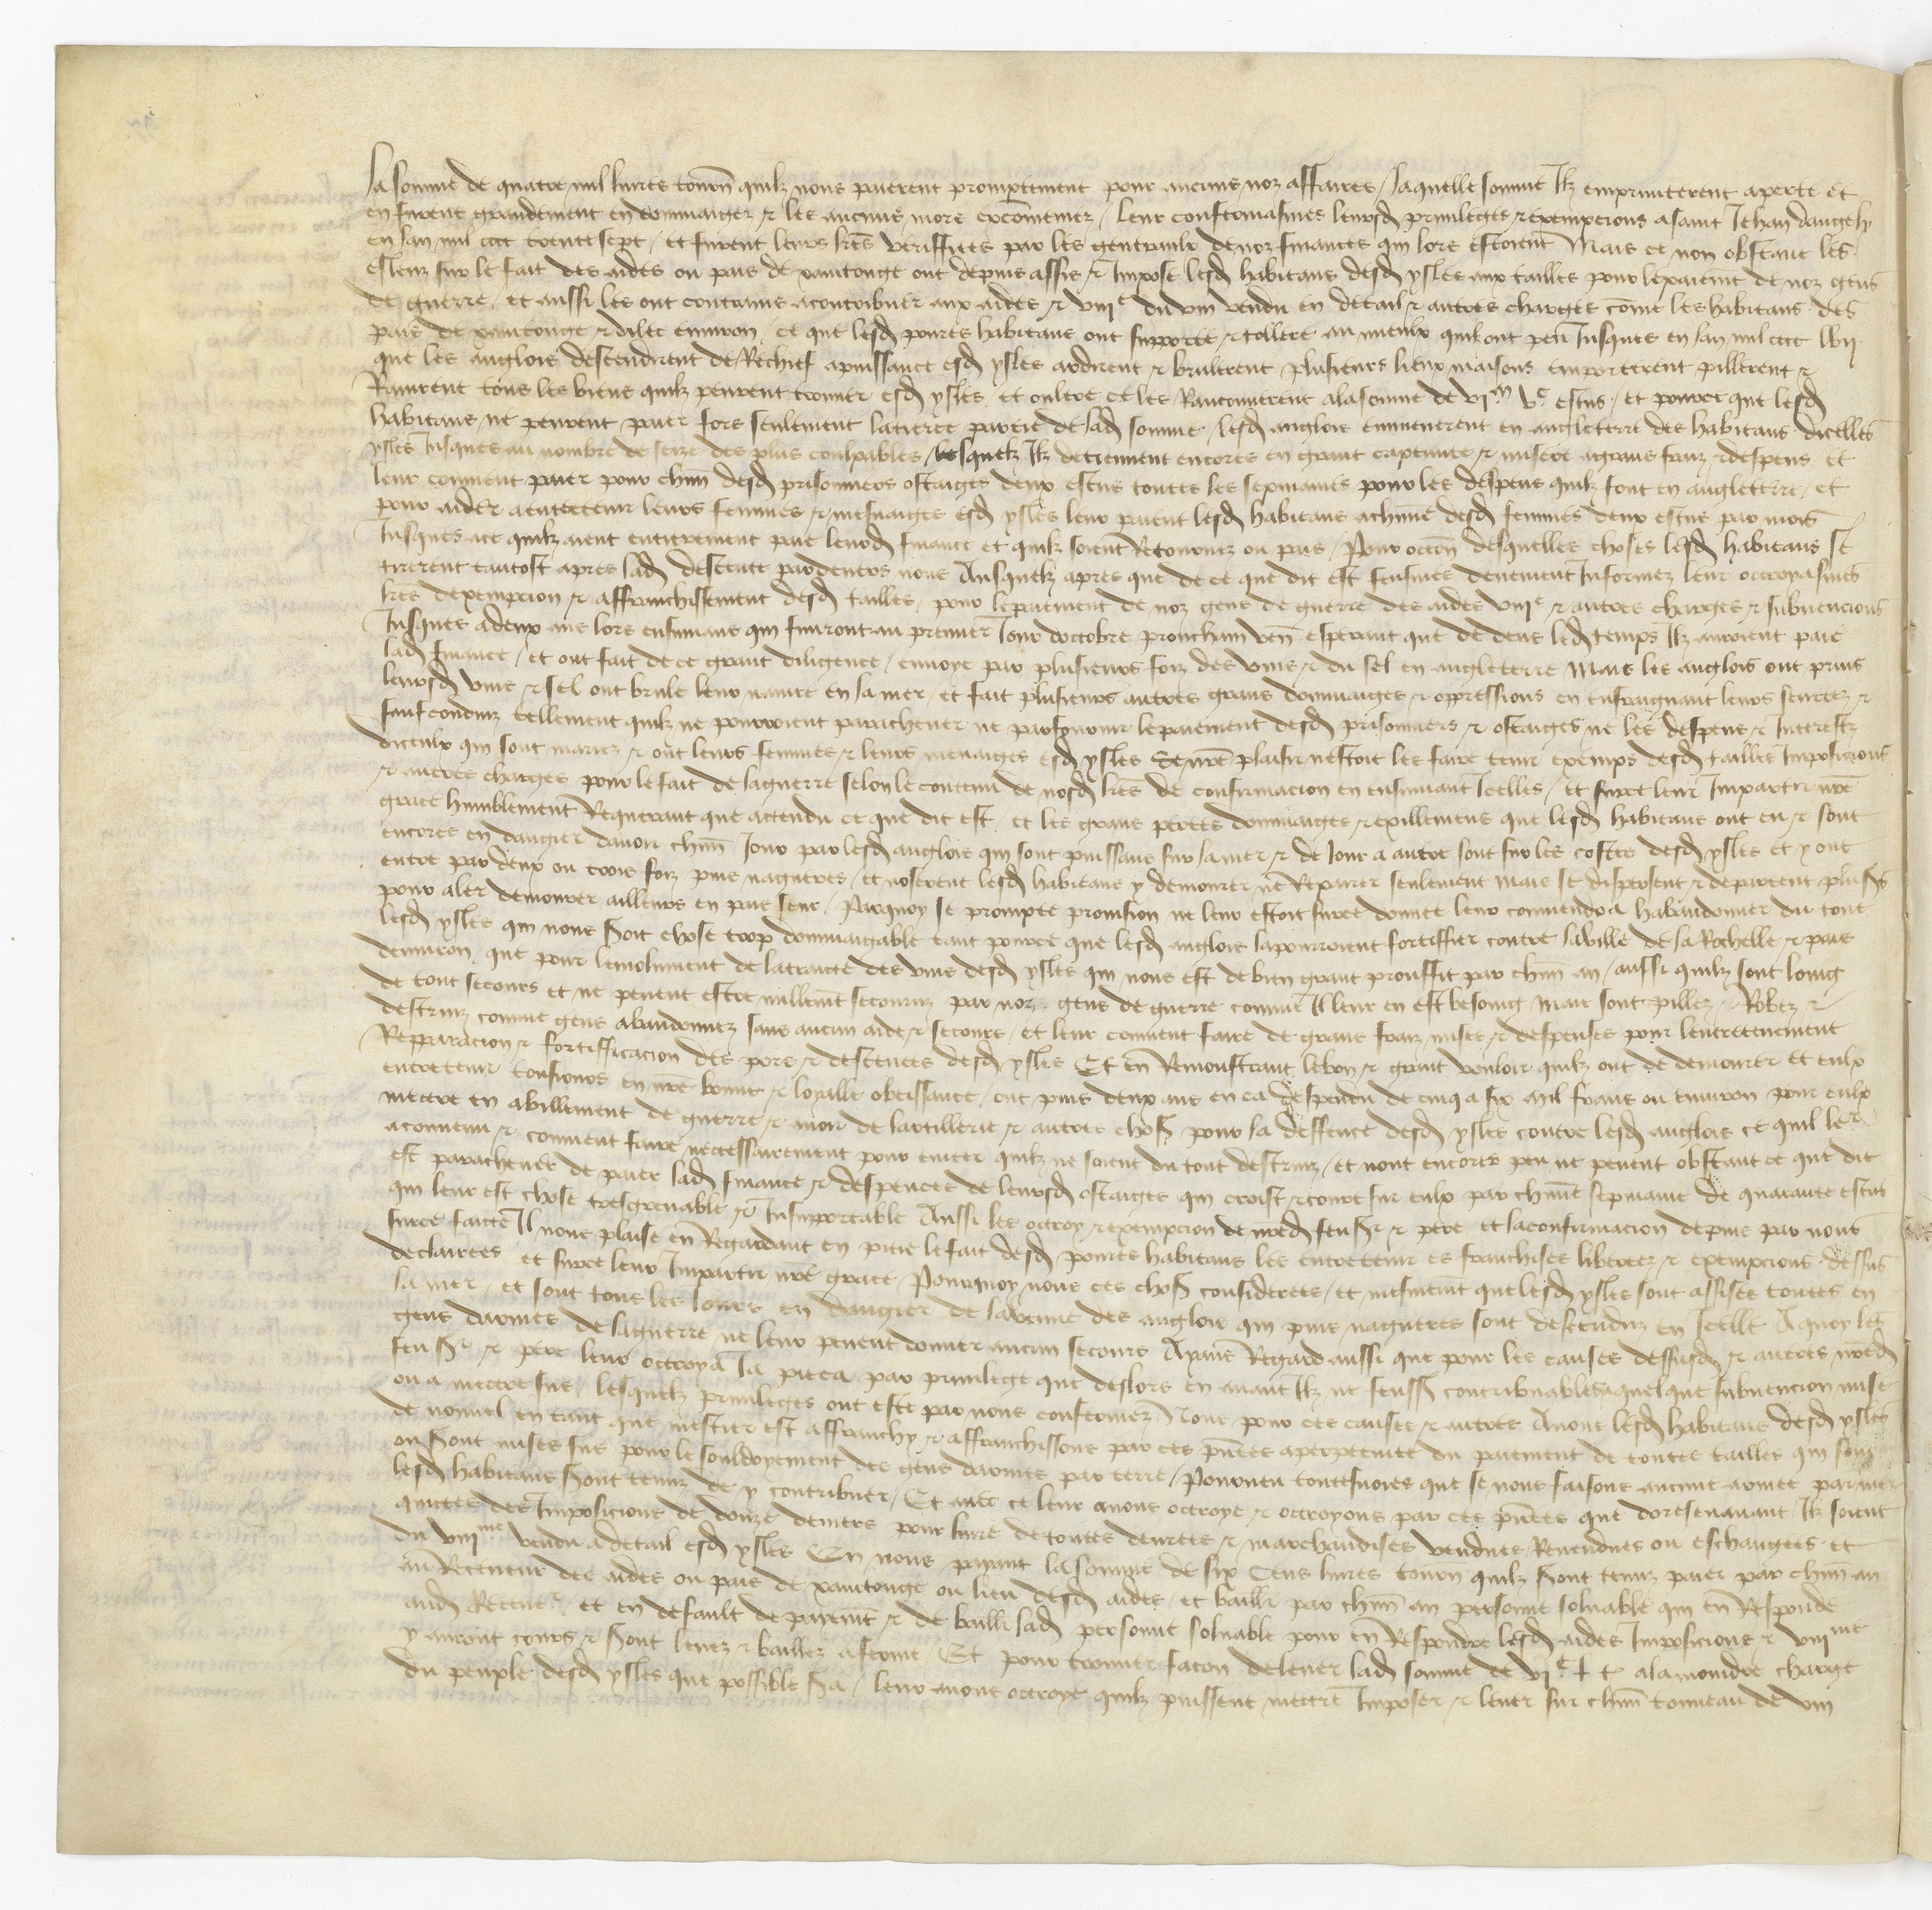 la somme de quatre mil livres tourn̄ quilz nous paierent promptement pour aucuns noz affaires / laquelle somme Ilz emprunterent a perte et
en furent grandement endommaigez & les aucuns mors excōmeniez / leur confermasmes leursd privileges & exempcions a saint Jehan dangely
en lan mil cccc trente sept / et furent leurs lrēs veriffiees par les generaulx de noz finances qui lors estoient Mais ce non obstant les
esleuz sur le fait des aides ou pais de xantonge ont depuis assis & Impose lesd habitans desd ysles aux tailles pour le paiemt de noz gens
de guerre / et aussi les ont contrains a contribuer aux aides & viiie du vin vendu en detail & autres charges cōme les habitans des
pais de xantonge & dilec environ / ce que lesd povres habitans ont supporte & tollere au mieulx quilz ont peu Jusques en lan mil cccc lvii
que les anglois descendirent de Rechief a puissance esd ysles ardirent & brulerent plusieurs lieux maisons emporterent pillerent &
Ravirent tous les biens quilz peurent trouver esd ysles / et oultre ce les Ranconnerent a la somme de vi m vc escus / et pource que lesd
habitans ne peurent paier fors seulement la tierce partie de lad somme / lesd anglois emmenerent en angleterre des habitans dicelles
ysles Jusques au nombre de seize des plus coulpables / lesquelz Ilz detiennent encores en grant captivite & misere a grans fraiz & despens et
leur convient paier pour chūn desd prisonniers ostaiges deux escus toutes les sepmaines pour les despens quilz font en angleterre / et
pour aider a entretenir leurs femmes & mesnaiges esd ysles leur paient lesd habitans a chūne desd femmes deux escus par mois
Jusques ace quilz aient entierement paie leurd finance et quilz soient Retournez ou pais / Pour occōn desquelles choses lesd habitans se
tirerent tantost apres lad descente pardevers nous Ausquelz apres que de ce que dit est feusmes deuement Informez leur octroyasmes
lrēs dexempcion & affranchissement desd tailles / pour le paiement de noz gens de guerre des aides viiie & autres charges & subvencions
Jusques a deux ans lors ensuivans qui finiront au premier Jour doctobre prouchain ven̄ esperant que dedens led temps Ilz auroient paie
lad finance / et ont fait de ce grant diligence / envoye par plusieurs foiz des vins & du sel en angleterre Mais les anglois ont prins
leursd vins & sel ont brule leur navire en la mer / et fait plusieurs autres grans dommaiges & oppressions en enfraignant leurs seuretez &
saufconduiz tellement quilz ne pourroient parachever ne parfournir le paiement desd prisonniers & ostaiges ne les despens & Interestz
diceulx qui sont mariez & ont leurs femmes & leurs menaiges esd ysles Se nr̄e plaisir nestoit les faire tenir exemps desd tailles Imposicions
& autres charges pour le fait de la guerre selon le contenu de nosd lrēs de confirmacion en ensuivant Icelles / et sur ce leur Impartir nr̄e
grace humblement Requerant que actendu ce que dit est / et les grans pertes dommaiges & exillemens que lesd habitans ont eu & sont
encores en dangier davoir chūn Jour par lesd anglois qui sont puissans sur la mer & de Jour a autre sont sur les costes desd ysles et y ont
entre par deux ou trois foiz puis nagueres / et noserent lesd habitans y demourer ne Reparer seulement mais se dispersent & departent plusrs̄
pour aler demourer ailleurs en pais seur / Parquoy se prompte provision ne leur estoit sur ce donnee leur conviendra habandonner du tout
lesd ysles qui nous s̄oit chose trop dommaigable tant pource que lesd anglois la pourroient fortiffier contre la ville de la Rochelle & pais
denviron / que pour lemolument de la traicte des vins desd ysles qui nous est de bien grant prouffit par chūn an / aussi quilz sont loing
de tout secours et ne pevent estre nullemt̄ secouruz par noz gens de guerre comme Il leur en est besoing Mais sont pillez / Robez &
destruiz comme gens abandonnez sans aucun aide & secours / et leur convient faire de grans fraiz mises & despenses pour lentretenement
Repparacion & fortifficacion des pors & descentes desd ysles Et en Remonstrant le bon & grant vouloir quilz ont de demourer et eulx
entretenir tousiours en nr̄e bonne & loyalle obeissance / ont puis deux ans en ca despendu de cinq a six mil frans ou environ pour eulx
mectre en abillement de guerre & avoir de lartillerie & autres chos̄ pour la deffence desd ysles contre lesd anglois ce quil leᵣ
a convenu & convient faire necessairement pour eviter quilz ne soient du tout destruiz / et nont encores peu ne pevent obstant ce que dit
est parachever de paier lad finance & despences de leursd ostaiges qui croist & court sur eulx par chūne sepmaine de quarante escus
qui leur est chose tresgrevable & Insupportable Aussi les octroy & exempcion de nr̄ed feu s̄r & pere et la confirmacion depuis par nous
sur ce faicte Il nous plaise en Regardant en pitie le fait desd povres habitans les entretenir es franchises libertez & exempcions dessus
declairees / et sur ce leur Impartir nr̄e grace / Pourquoy nous ces chos̄ considerees / et mesmemt̄ que lesd ysles sont assises toutes en
la mer / et sont tous les Jours en dangier de la venue des anglois qui puis nagueres sont descenduz en Icelle A quoy les
gens darmes de la guerre / ne leur pevent donner aucun secours Ayans Regard aussi que pour les causes dessusd & autres nr̄ed
feu s̄r & pere leur octroya Ja pieca par privilege que deslors en avant Ilz ne feuss̄ contribuables a quelque subvencion mise
ou a mectre sus / lesquelz privileges ont este par nous confermez Nous pour ces causes & autres Avons lesd habitans desd ysles
de nouvel en tant que mestier est affranchy & affranchissons par ces pn̄tes a perpetuite du paiement de toutes tailles qui sont
ou s̄ont mises sus pour le souldoyement des gens darmes par terre / Pourveu toutesvoies que se nous faisons aucune armee par mer
lesd habitans s̄ont tenuz de y contribuer / Et avec ce leur avons octroye & octroyons par ces pn̄tes que doresenavant Ilz soient
quictes des Imposicions de douze deniers pour livre de toutes denrees & marchandises vendues Revendues ou eschangees et
du viiime vendu a detail esd ysles En nous paiant la somme de six cens livres tourn̄ quilz s̄ont tenuz paier par chūn an
au Receveur des aides ou pais de xantonge ou lieu desd aides / et baillr̄ par chūn an personne solvable qui en Responde
aud Receveᵣ / et en default de paiemt̄ & de baillr̄ lad personne solvable pour en Respondre lesd aides Imposicions & viiime
y auront cours & s̄ont levez & baillez a ferme / Et pour trouver facon de lever lad somme de vic ₶ tᵣ a la moindre charge
du peuple desd ysles que possible s̄a / leur avons octroye quilz puissent mectre Imposer & lever sur chūn tonneau de vin